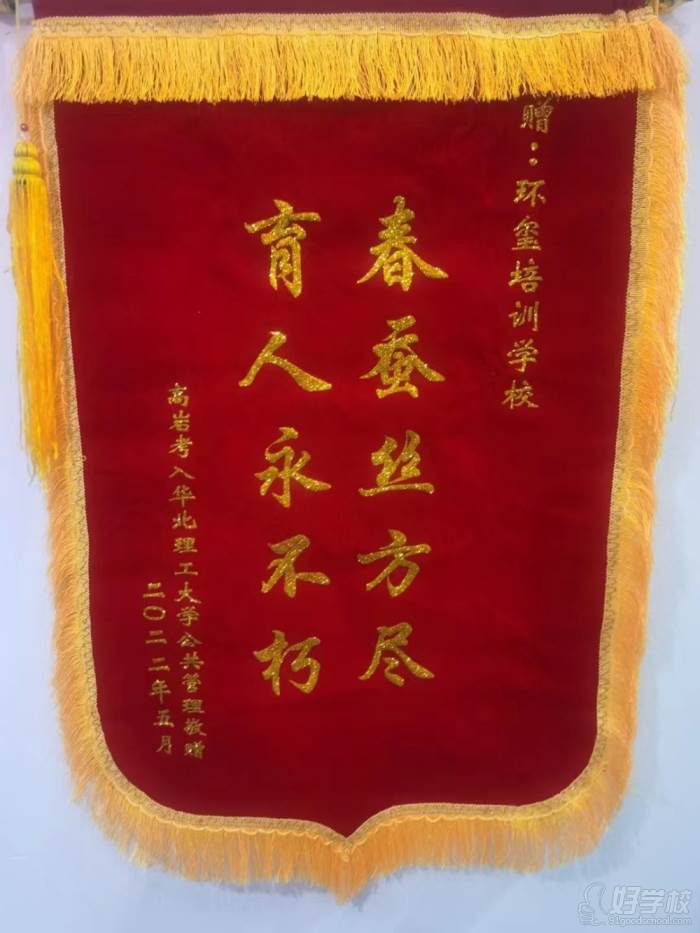 赠：环玺培训学校
春蚕丝方尽
育人永不朽
高岩考入华北理工大学公共管理敬赠
二〇二二年五月
好学校
91goodschool.com